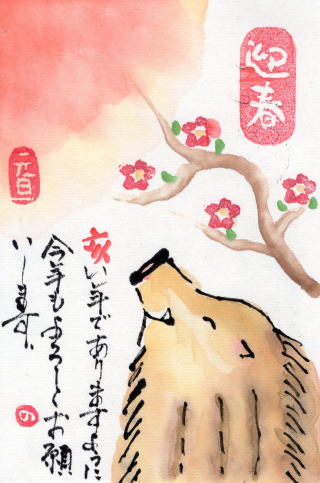 迎春
元旦
亥い年でありますように
今年もよろしくお願
いします。
の